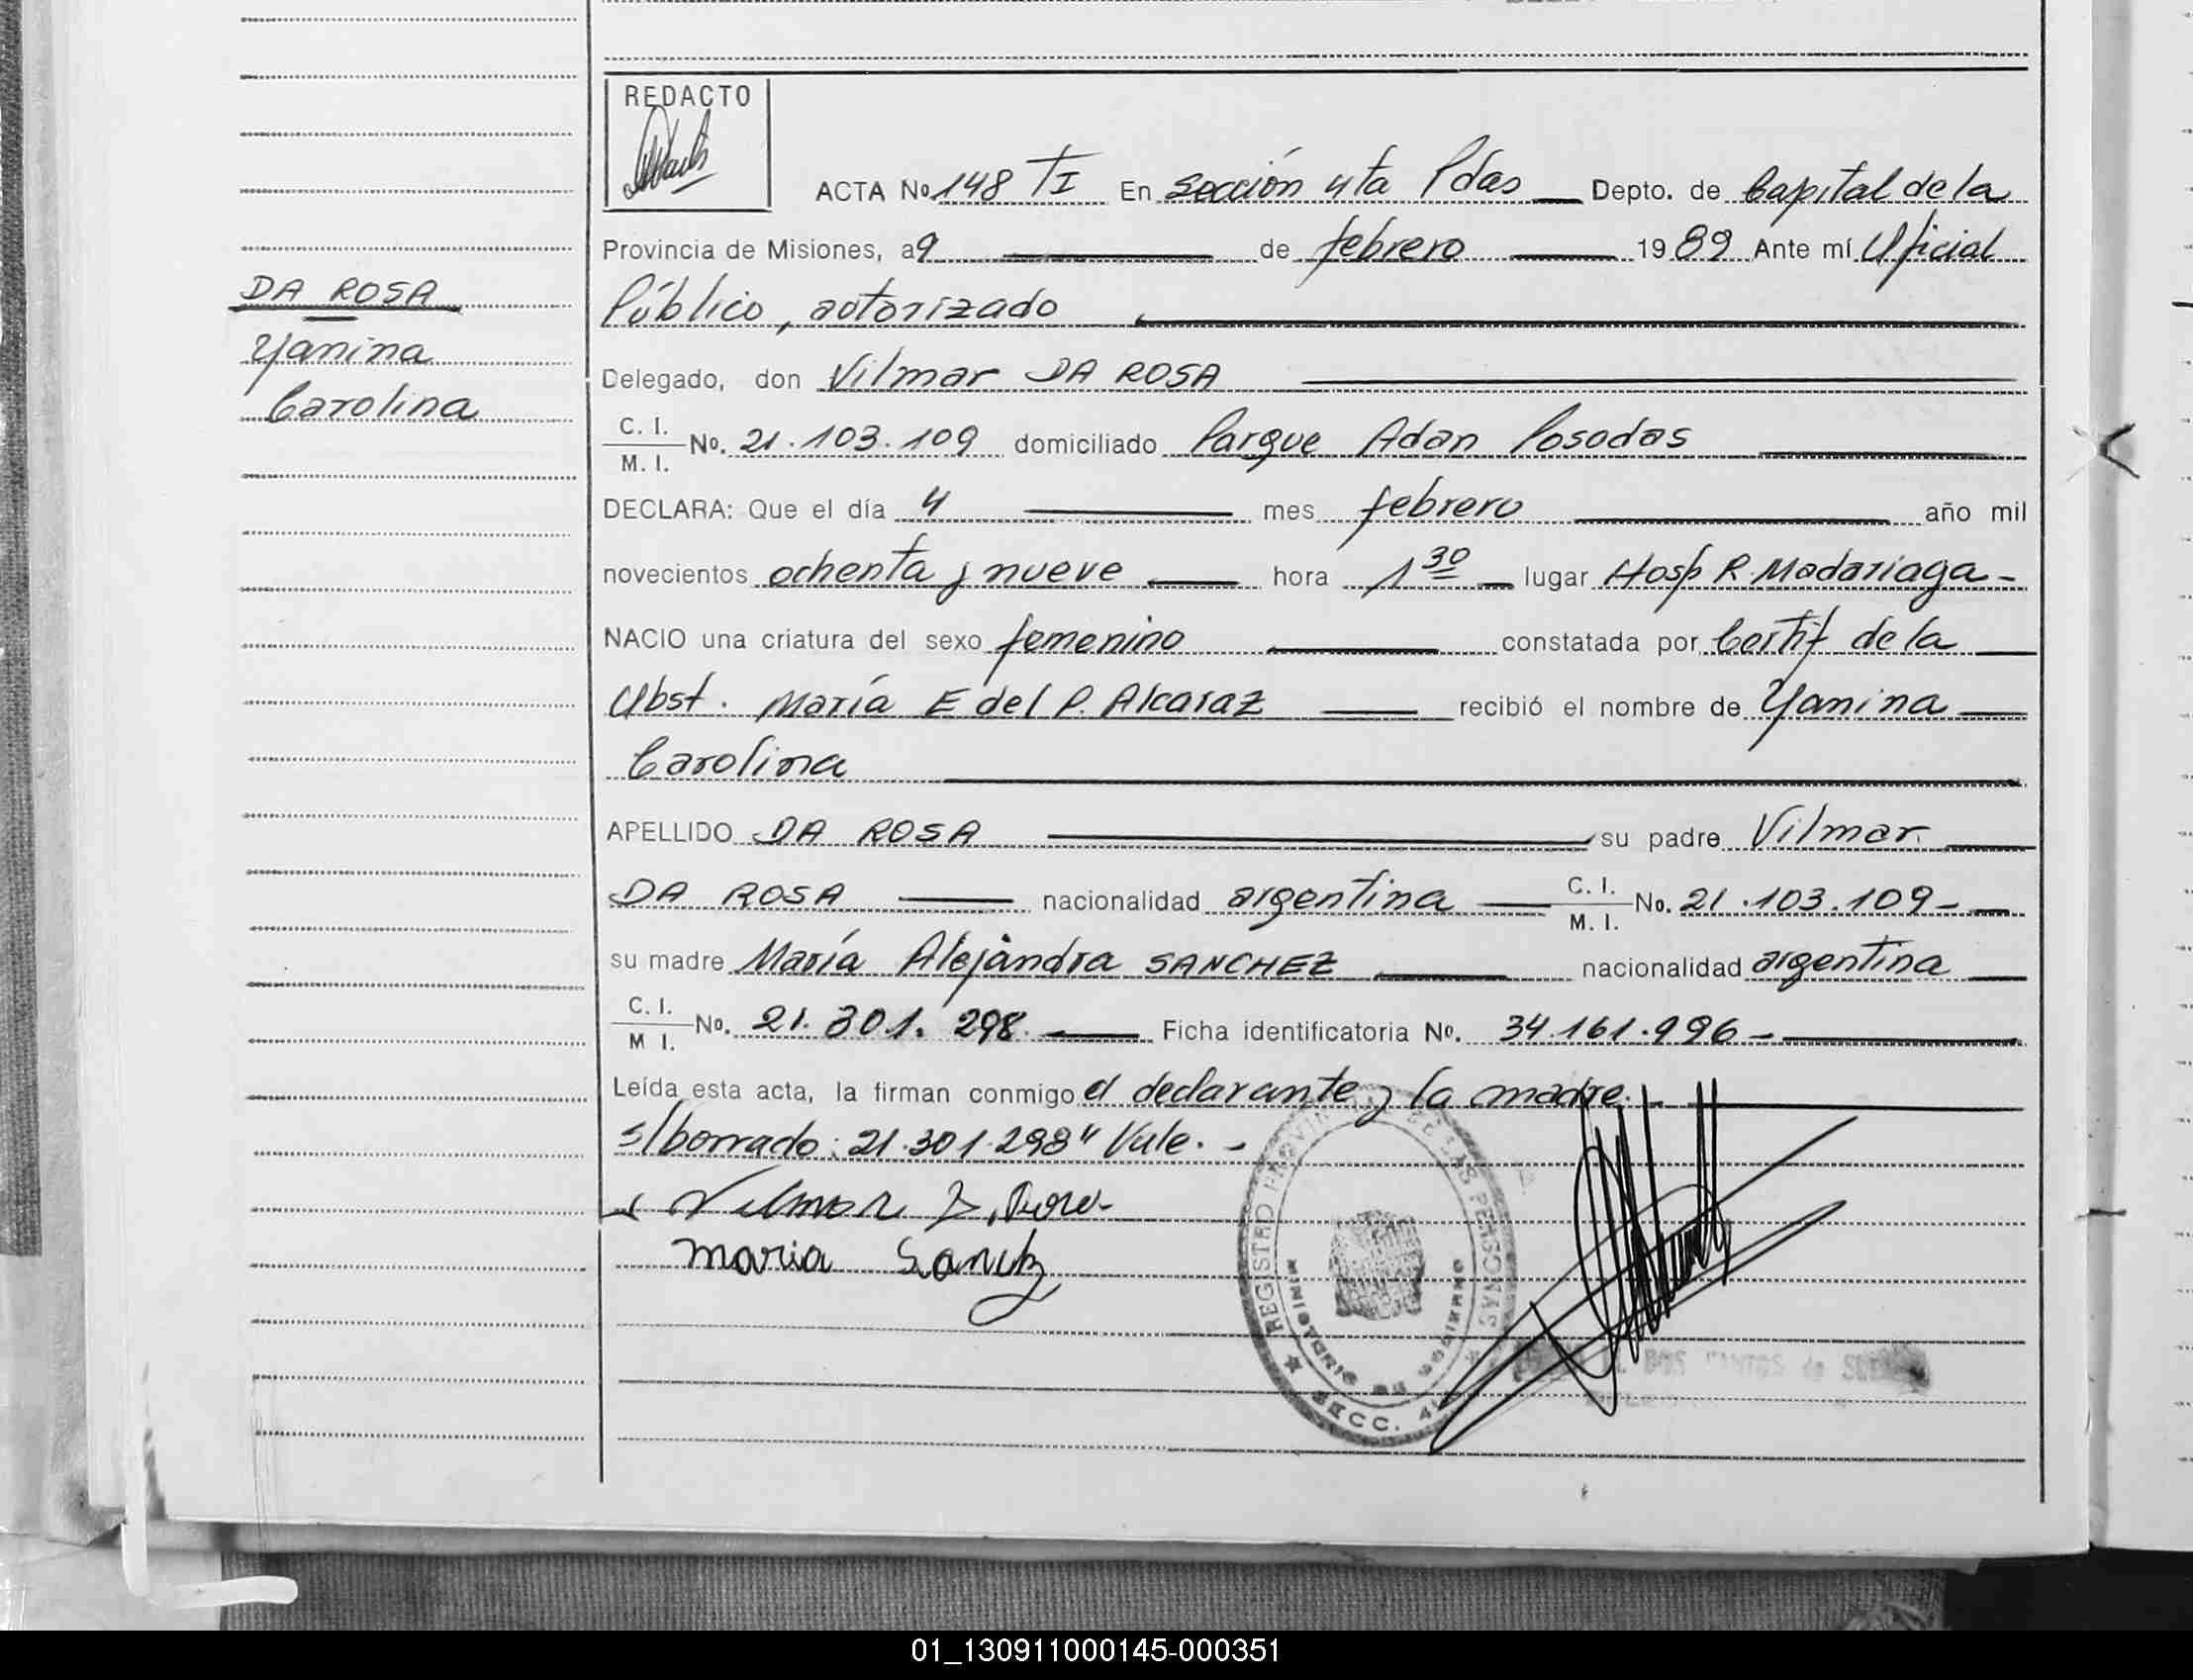 REDACTO
ACTA No 148 TI En Sección 4ta Pdas Depto. de Capital de la
Provincia de Misiones, a 9 de febrero 1989 Ante mí Oficial
Público, autorizado
DA ROSA
Yanina
Carolina
Delegado, don Vilmar DA ROSA
C. I.
M. I. No. 21.103.109 domiciliado Parque Adan Posadas
DECLARA: Que el día 4 mes febrero año mil
novecientos ochenta y nueve hora 1 30 lugar Hosp R. Madariaga -
NACIO una criatura del sexo femenino constatada por Certif de la
Obst. María E del P. Alcaraz recibió el nombre de Yanina
Carolina
APELLIDO DA ROSA su padre Vilmar
DA ROSA nacionalidad argentina C. I. M. I. No. 21.103.109 -
su madre María Alejandra SANCHEZ nacionalidad argentina
C. I.
M I. No. 21.301.298 Ficha identificatoria No. 34.161.996 -
Leída esta acta, la firman conmigo el declarante y la madre. -
s/borrado: 21.301.298" Vale. -
Vilmar D. Rosa
Maria Sanchz
REGISTRO PROVINCIAL DE LAS PERSONAS
MINISTERIO DE GOBIERNO
SECC. 4
DOS SANTOS de
01_130911000145-000351